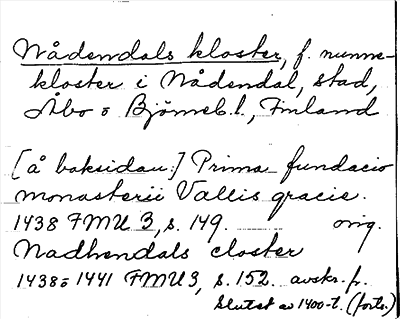 Nådendals kloster, f. nunne-
kloster i Nådendal, stad,
Åbo o Björneb. l., Finland
[å baksidan:] Prima fundacio
monasterii Vallis gracie.
1438 FMU 3, s. 149. orig.
Nadhendals closter
1438 o 1441 FMU 3, s. 152. avskr. fr.
Slutet av 1400-t. (forts.)